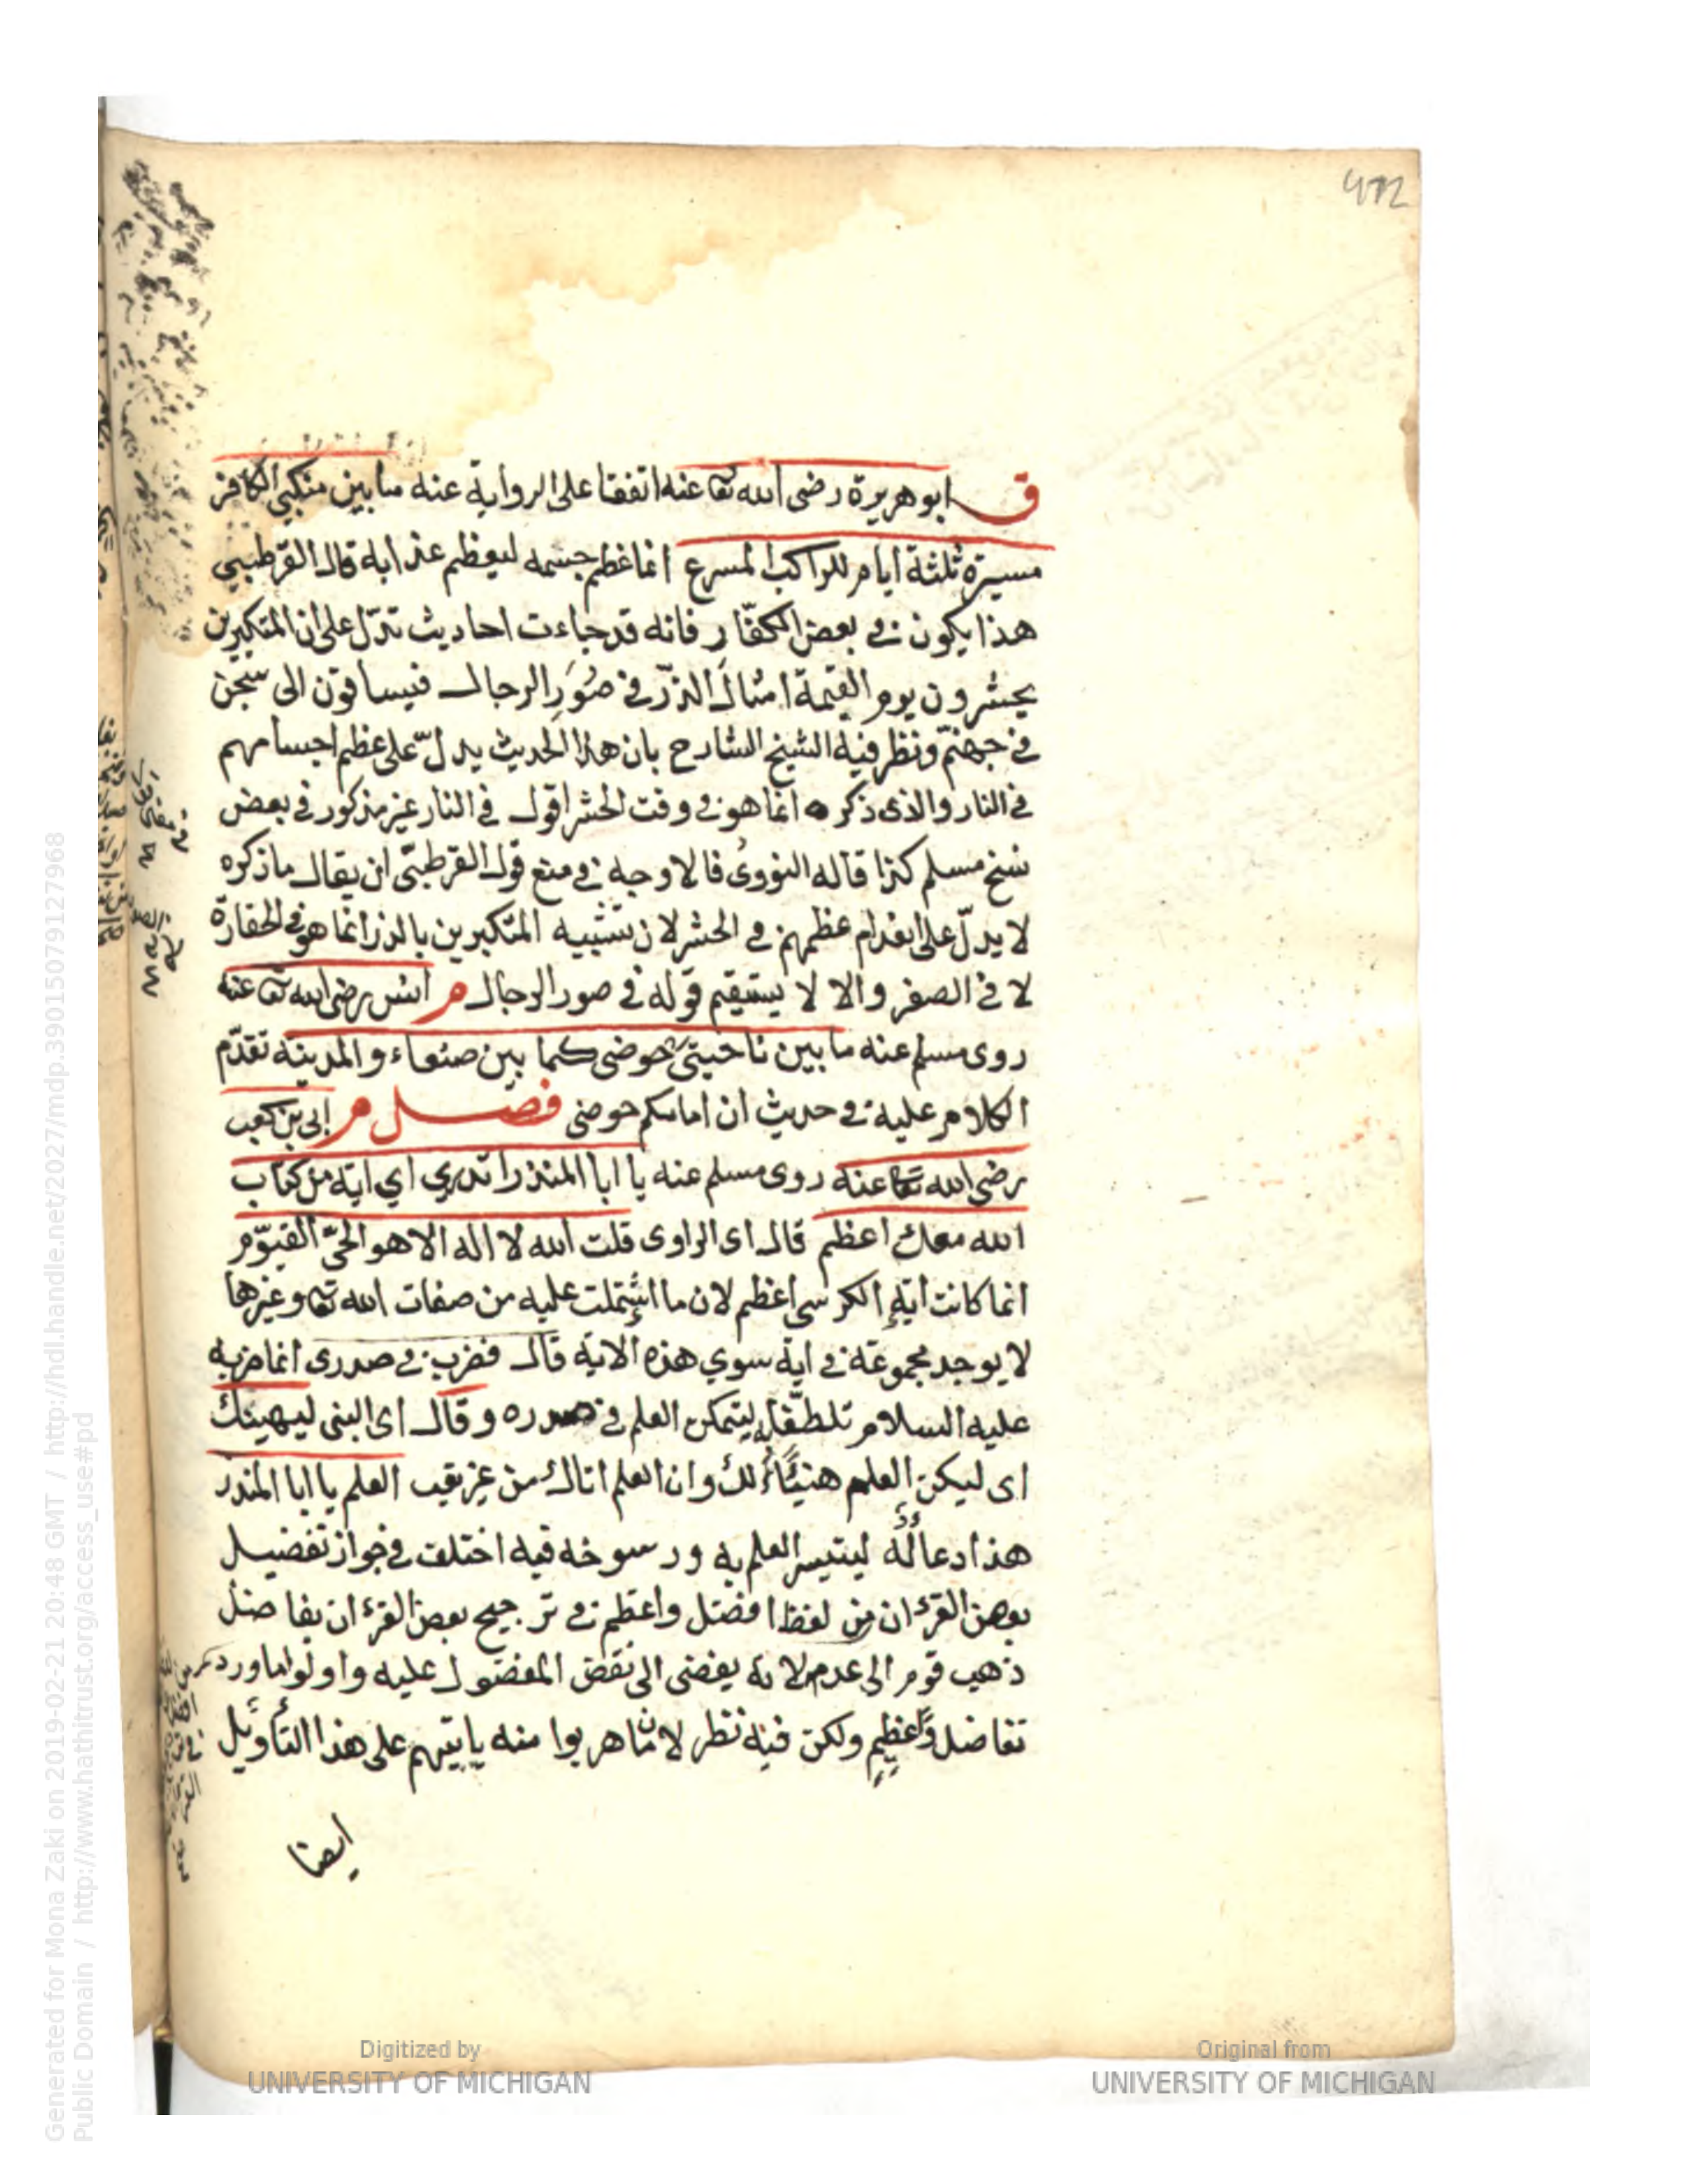 ق ابو هريرة رضى الله تعا عنه اتفقا على الرواية عنه ما بين منكبي الكافر
مسيرة ثلثة ايام للراكب المسرع انما عظم جسمه ليعظم عذابه قال القرطبي
هذا يكون في بعض الكفّار فانه قد جاءت احاديث تدّل على ان المتكبرين
يحشرون يوم القيمة امثالَ الذرّ في صُوَرِ الرجال فيساقون الى سجن
في جهنّم ونظر فيه الشيخ الشارح بان هذا الحديث يدلّ على عظم اجسامهم
في النار والذى ذكره انما هو في وقت الحشر اقول في النار غير مذكور في بعض
نسخ مسلم كذا قاله النووىُ فالاوجه في منع قول القرطبّى ان يقال ما ذكره
لا يدلّ على انعدام عظمهم في الحشر لان تشبيه المتكبرين بالذر انما هو في الحقارة
لا في الصغر والا لا يستقيم قوله في صور الرجال م انس رضى الله تعا عنه
روى مسلم عنه ما بين ناحيتى حوضى كما بين صنعاء والمدينة تقدّم
الكلام عليه في حديث ان امامكم حوضى فصل م ابى بن كعب
رضى الله تعا عنه روى مسلم عنه يا ابا المنذر اتدري اي اية من كتاب
الله معك اعظم قال اى الراوى قلت الله لا اله الا هو الحىّ القيّوم
انما كانت اية الكرسى اعظم لان ما اشتملت عليه من صفات الله تعا وغيرها
لا يوجد مجموعة في اية سوي هذه الاية قال فضرب في صدرى انما ضربه
عليه السلام تلطّفا به ليتمكن العلم في صدره وقال اى النبى ليهينك
اى ليكن العلم هنيئًا لك وان العلم اتاك من غير تعب العلم يا ابا المنذر
هذا دعاءٌ له ليتيسر العلم به ورسوخه فيه اختلف في جواز تفضيل
بعض القرءان من لفظ افضل واعظم في ترجيح بعض القرءان بفاضل
ذهب قوم الى عدمه لانه يفضى الى نقض المفضول عليه واولوا ما ورد
تفاضل وعظيمٍ ولكن فيه نظر لان ما هربوا منه ياتيهم على هذا التأويل
ايضا
472
Digitized by
UNIVERSITY OF MICHIGAN
Original from
UNIVERSITY OF MICHIGAN
Generated for Mona Zaki on 2019-02-21 20:48 GMT / http://hdl.handle.net/2027/mdp.39015079127968
Public Domain / http://www.hathitrust.org/access_use#pd